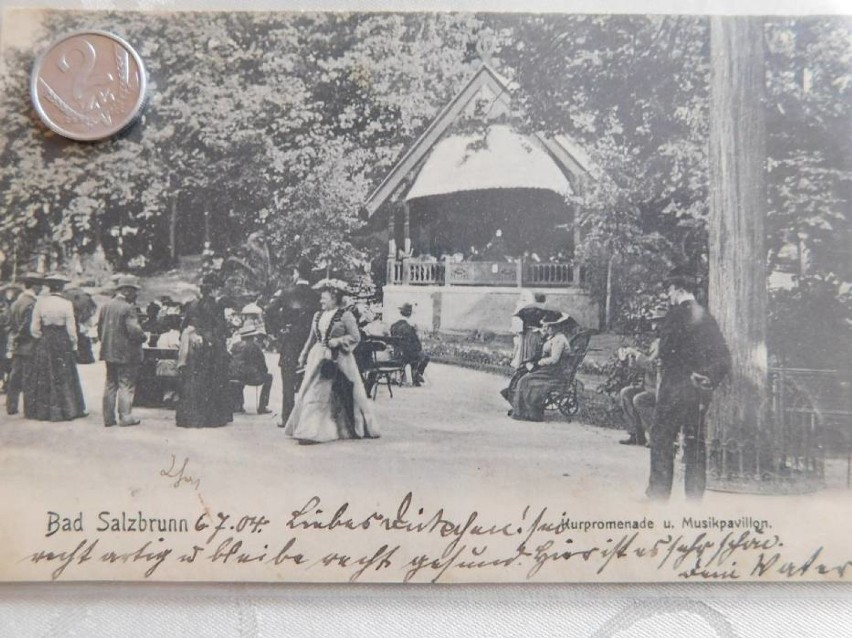 2
Bad Salzbrunn 6.7.04. Liebes ! sei Kurpromenade u. Musikpavillon.
recht artig u bleibe recht gesund. Hier ist es sehr schön.
dein Vater